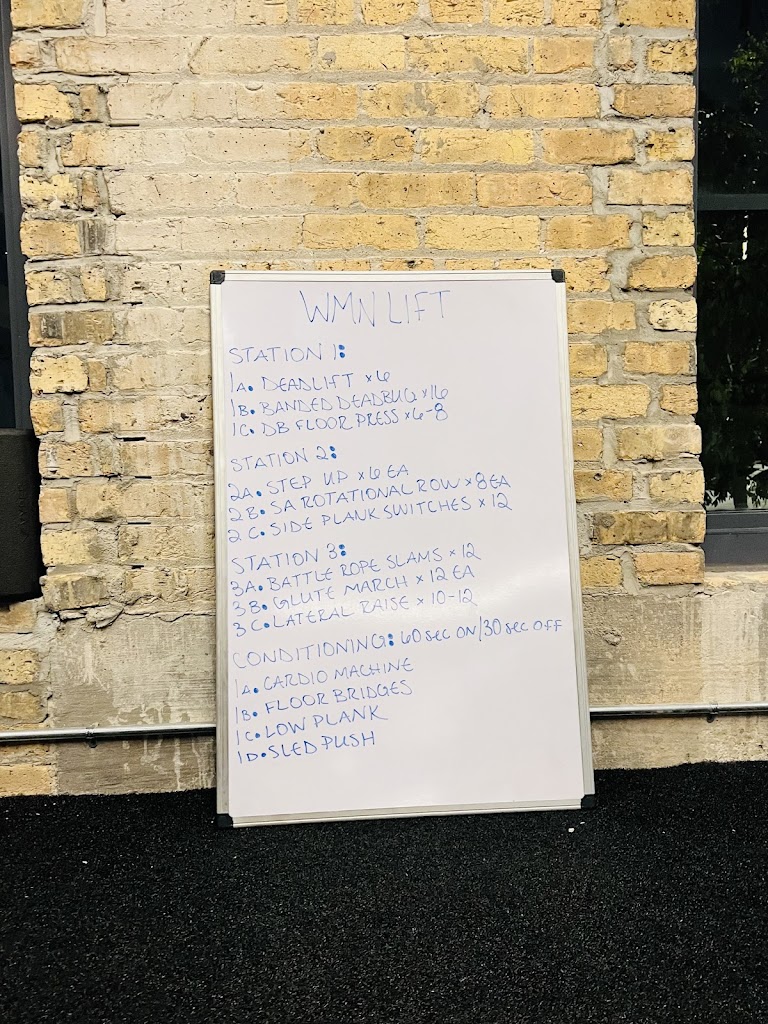 WMN LIFT
STATION 1:
1A. DEADLIFT x6
1B. BANDED DEADBUG x16
1C. DB FLOOR PRESS x6-8
STATION 2:
2A. STEP UP x6 EA
2B. SA ROTATIONAL ROW x8EA
2C. SIDE PLANK SWITCHES x 12
STATION 3:
3A. BATTLE ROPE SLAMS x 12
3B. GLUTE MARCH x 12 EA
3C. LATERAL RAISE x 10-12
CONDITIONING: 60 SEC ON/30 SEC OFF
1A. CARDIO MACHINE
1B. FLOOR BRIDGES
1C. LOW PLANK
1D. SLED PUSH